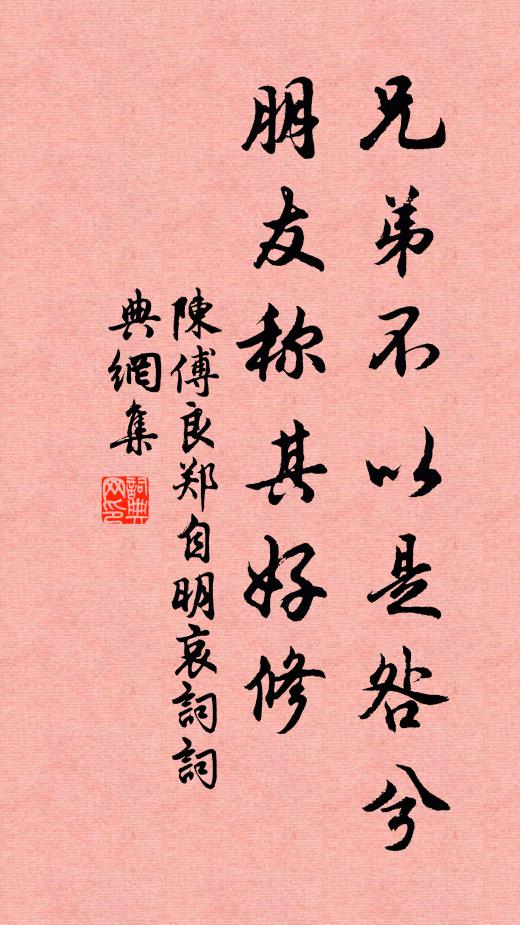 兄弟不以是咎兮
朋友称其好修
陳傅良郑自明哀詞詞
典網集
詞典網印